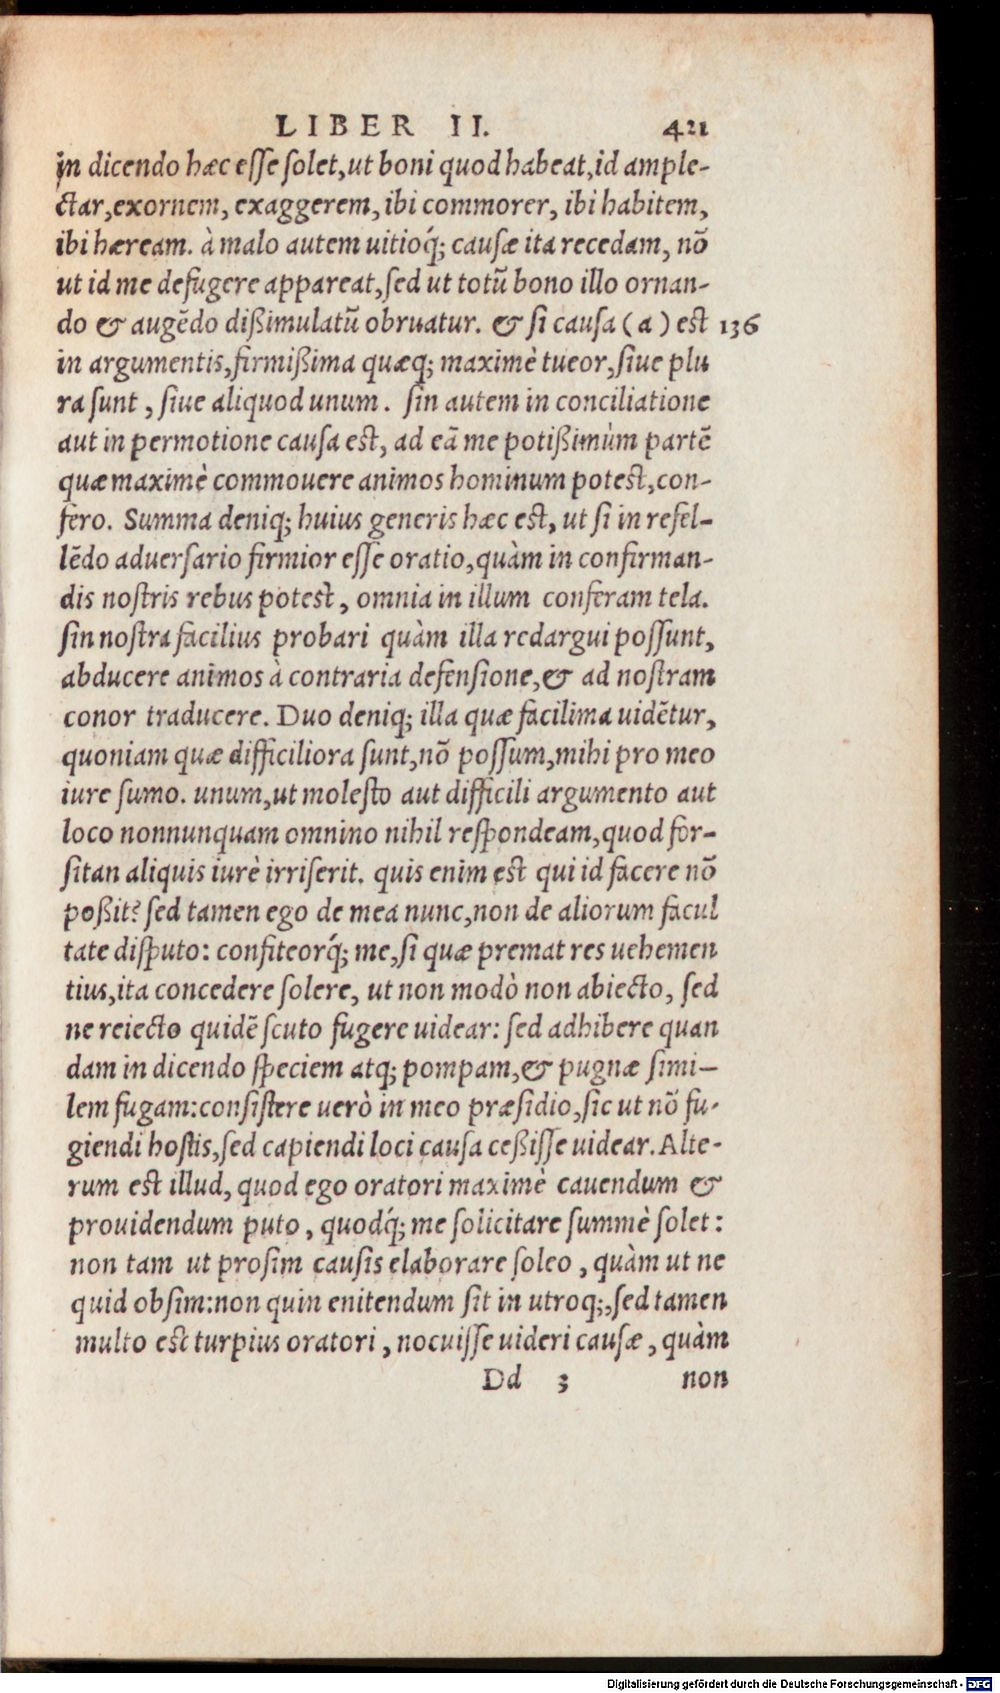 LIBER II. 421
in dicendo hæc esse solet, ut boni quod habeat, id ample-
ctar, exornem, exaggerem, ibi commorer, ibi habitem,
ibi hæream. à malo autem uitioq́; causæ ita recedam, nō
ut id me defugere appareat, sed ut totū bono illo ornan-
do & augēdo dißimulatū obruatur. & si causa (a) est 136
in argumentis, firmißima quæq; maximè tueor, siue plu
ra sunt, siue aliquod unum. sin autem in conciliatione
aut in permotione causa est, ad eā me potißimùm partē
quæ maximè commouere animos hominum potest, con-
fero. Summa deniq; huius generis hæc est, ut si in refel-
lēdo aduersario firmior esse oratio, quàm in confirman-
dis nostris rebus potest, omnia in illum conferam tela.
sin nostra facilius probari quàm illa redargui possunt,
abducere animos à contraria defensione, & ad nostram
conor traducere. Duo deniq; illa quæ facilima uidētur,
quoniam quæ difficiliora sunt, nō possum, mihi pro meo
iure sumo. unum, ut molesto aut difficili argumento aut
loco nonnunquam omnino nihil respondeam, quod for-
sitan aliquis iurè irriserit. quis enim est qui id facere nō
poßit? sed tamen ego de mea nunc, non de aliorum facul
tate disputo: confiteorq́; me, si quæ premat res uehemen
tius, ita concedere solere, ut non modò non abiecto, sed
ne reiecto quidē scuto fugere uidear: sed adhibere quan
dam in dicendo speciem atq; pompam, & pugnæ simi-
lem fugam: consistere uerò in meo præsidio, sic ut nō fu-
giendi hostis, sed capiendi loci causa ceßisse uidear. Alte-
rum est illud, quod ego oratori maximè cauendum &
prouidendum puto, quodq́; me solicitare summè solet:
non tam ut prosim causis elaborare soleo, quàm ut ne
quid obsim: non quin enitendum sit in utroq;, sed tamen
multo est turpius oratori, nocuisse uideri causæ, quàm
Dd 3 non
Digitalisierung gefördert durch die Deutsche Forschungsgemeinschaft - DFG